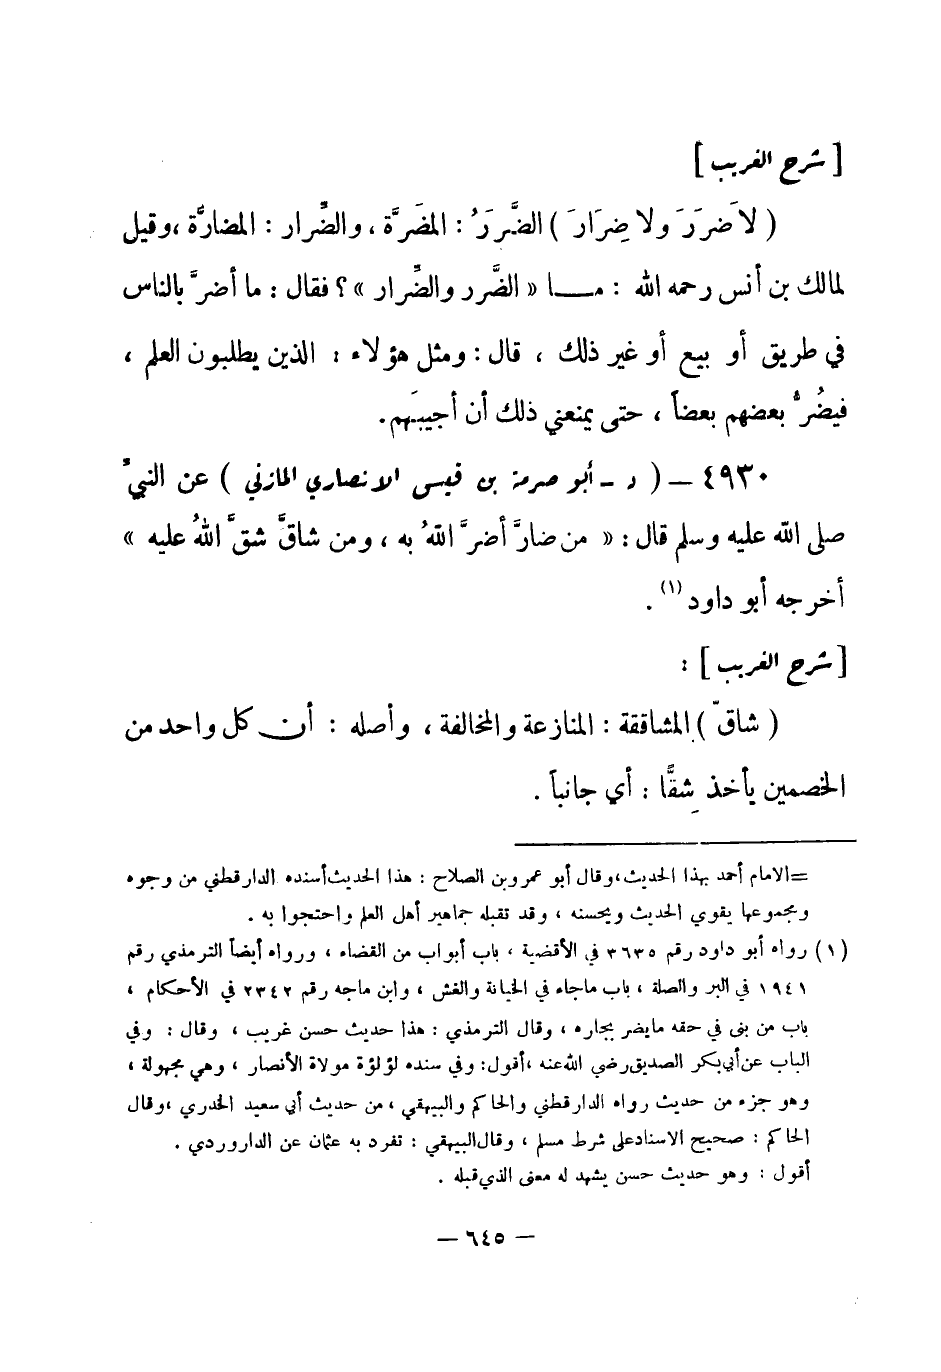 [ شرح الغريب ]
( لاَ ضَرَرَ ولا ضِرَارَ ) الضَّرَرُ : المضَرَّة ، والضِّرار : المضارَّة ،وقيل
لمالك بن أنس رحمه الله : مـــا « الضَّرر والضِّرار » ؟ فقال : ما أضرَّ بالناس
في طريق أو بيع أو غير ذلك ، قال : ومثل هؤلاء : الذين يطلبون العلم ،
فيضُرُّ بعضهم بعضاً ، حتى يمنعني ذلك أن أجيبَهم.
٤٩٣٠ – ( د – أبو صرمة بن قيس الأنصاري المازني ) عن النبيِّ
صلى الله عليه وسلم قال : « من ضارَّ أضرَّ اللهُ به ، ومن شاقَّ شقَّ اللهُ عليه »
أخرجه أبو داود (١) .
[ شرح الغريب ] :
( شاقَّ ) المشاققة : المنازعة والمخالفة ، وأصله : أن كل واحد من
الخصمين يأخذ شِقًّا : أي جانباً .
=الامام أحمد بهذا الحديث،وقال أبو عمرو بن الصلاح : هذا الحديث أسنده الدارقطني من وجوه
ومجموعها يقوي الحديث ويحسنه ، وقد تقبله جماهير أهل العلم واحتجوا به .
(١) رواه أبو داود رقم ٣٦٣٥ في الأقضية ، باب أبواب من القضاء ، ورواه أيضاً الترمذي رقم
١٩٤١ في البر والصلة ، باب ماجاء في الخيانة والغش ، وابن ماجه رقم ٢٣٤٢ في الأحكام ،
باب من بنى في حقه مايضر بجاره ، وقال الترمذي : هذا حديث حسن غريب ، وقال : وفي
الباب عن أبي بكر الصديق رضي الله عنه ،أقول: وفي سنده لؤلؤة مولاة الأنصار ، وهي مجهولة ،
وهو جزء من حديث رواه الدارقطني والحاكم والبيهقي ، من حديث أبي سعيد الخدري ،وقال
الحاكم : صحيح الاسناد على شرط مسلم ، وقال البيهقي : تفرد به عثمان عن الداروردي .
أقول : وهو حديث حسن يشهد له معنى الذي قبله .
– ٦٤٥ –